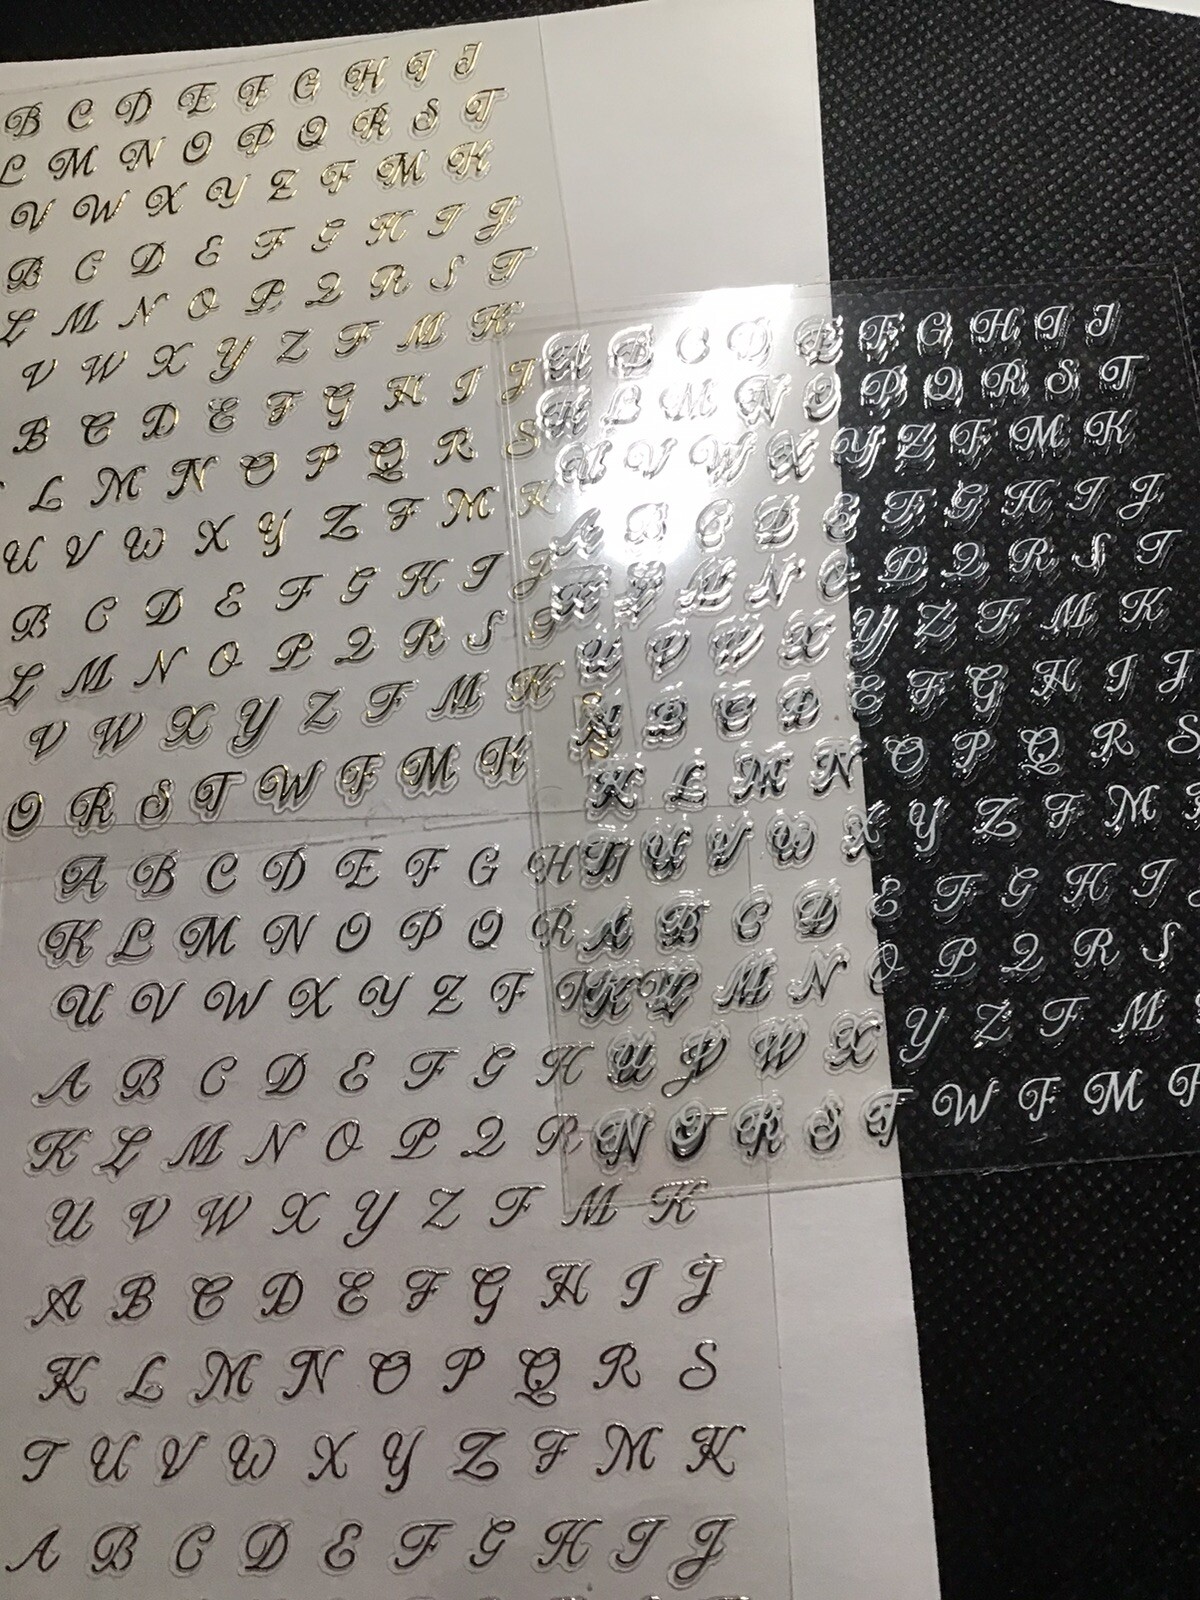 B C D E F G H I J
L M N O P Q R S T
V W X Y Z F M K
B C D E F G H I J
L M N O P Q R S T
V W X Y Z F M K
B C D E F G H I J
L M N O P Q R S
U V W X Y Z F M K
B C D E F G H I J
L M N O P Q R S T
V W X Y Z F M K
O R S T W F M K
A B C D E F G H
K L M N O P Q R
U V W X Y Z F M
A B C D E F G H
K L M N O P Q R
U V W X Y Z F M K
A B C D E F G H I J
K L M N O P Q R S
T U V W X Y Z F M K
A B C D E F G H I J
A B C D E F G H I J
K L M N O P Q R S T
U V W X Y Z F M K
A B C D E F G H I J
K L M N O P Q R S T
U V W X Y Z F M K
A B C D E F G H I J
K L M N O P Q R S
T U V W X Y Z F M
A B C D E F G H I
K L M N O P Q R S
U V W X Y Z F M
N O R S T W F M